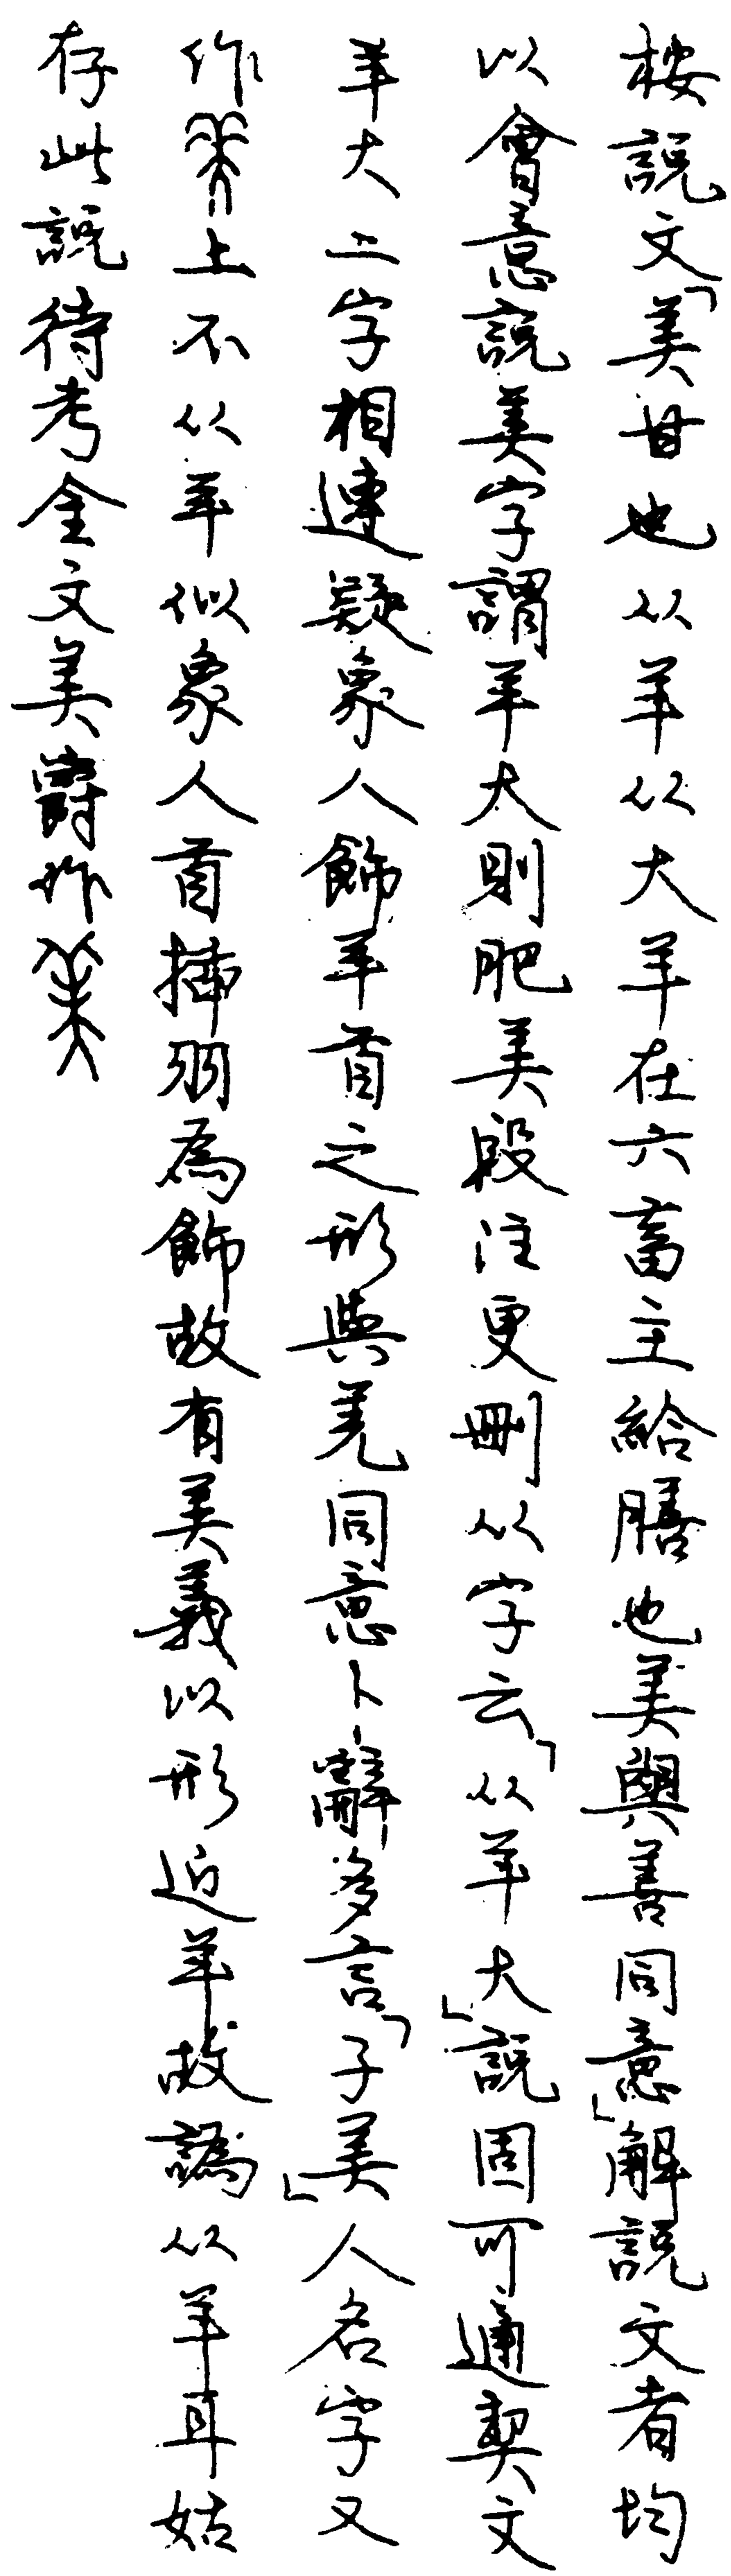 桉説文「美甘也从羊从大羊在六畜主給膳也美與善同意」解説文者均
以會意説美字謂羊大則肥美段注更刪从字云「从羊大」説固可通契文
羊大二字相連疑象人飾羊首之形與羌同意卜辭多言「子美」人名字又
作上不从羊似象人首插羽為飾故有美義以形近羊故譌从羊耳姑
存此説待考金文美爵作